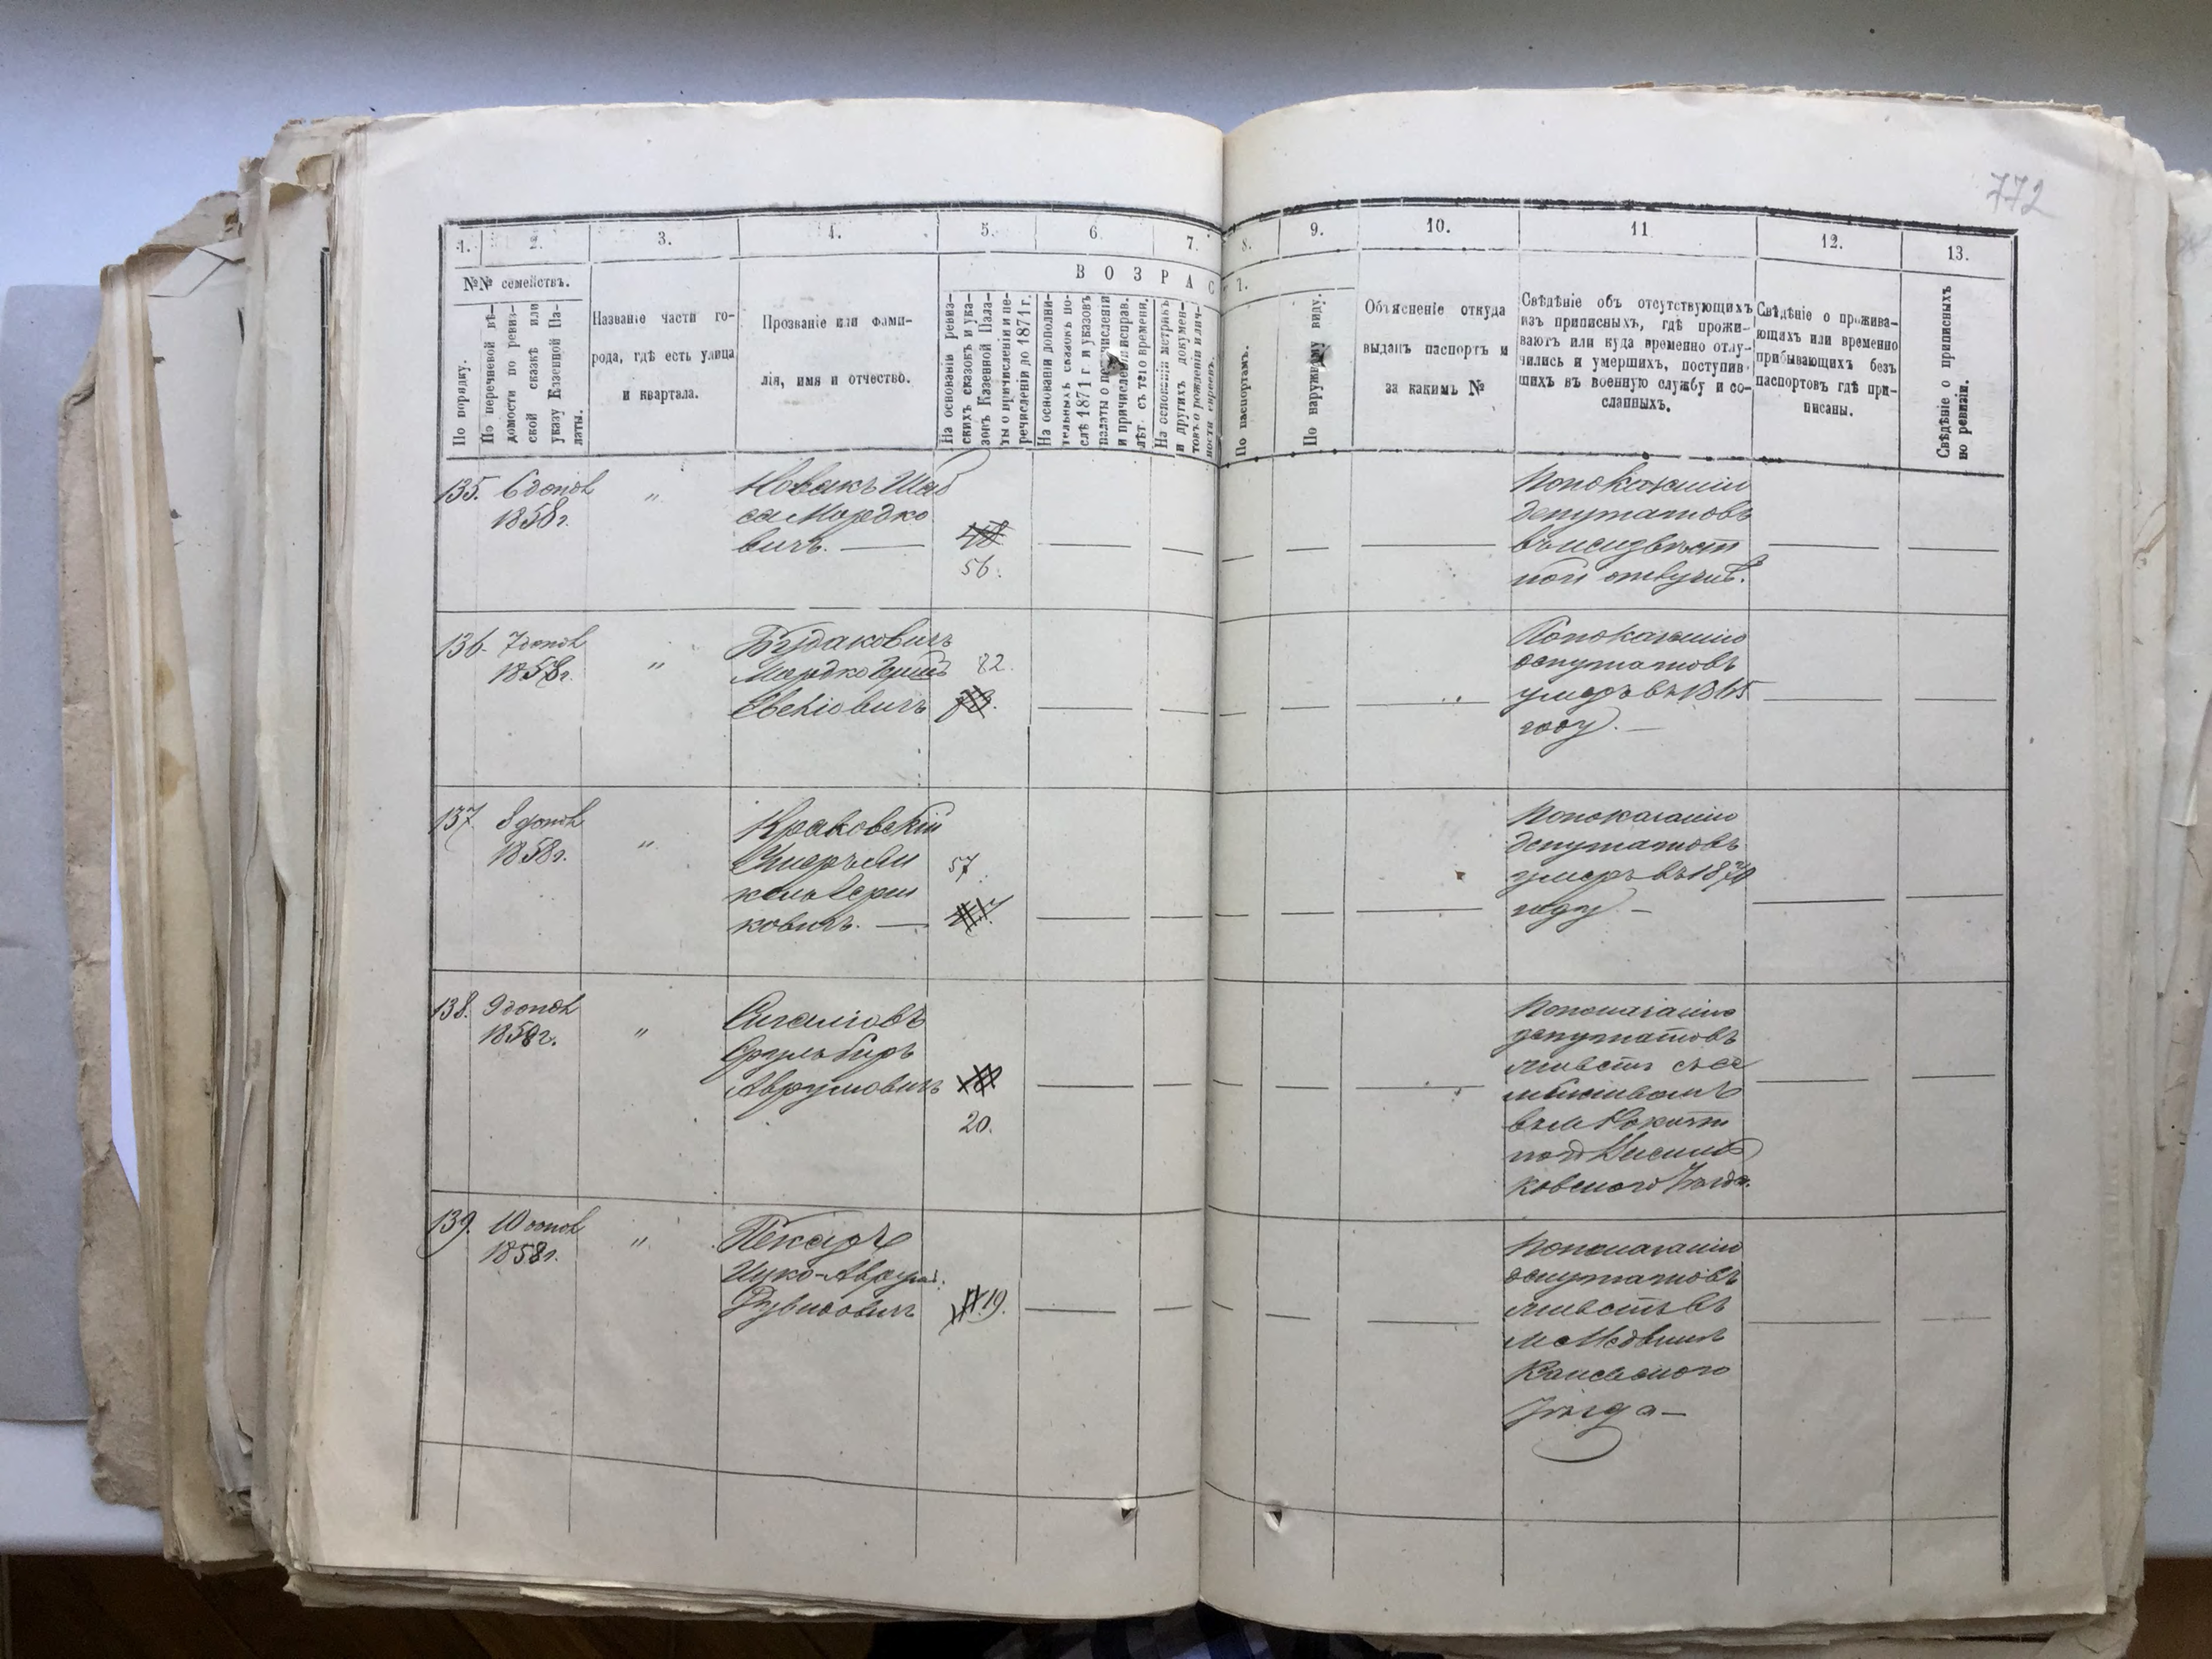 772
1. 2. 3. 4. 5. 6. 7. 8. 9. 10. 11 12. 13.
№№ семействъ.
По порядку.
По перечневой вѣ-
домости по ревиз-
ской сказкѣ или
указу Казенной Па-
латы.
Названіе части го-
рода, гдѣ есть улица
и квартала.
Прозваніе или фами-
лія, имя и отчество.
ВОЗРАС
Т.
На основаніи ревиз-
скихъ сказокъ и ука-
зовъ Казенной Пала-
ты о причисленіи и пе-
речисленіи до 1871 г.
На основаніи дополни-
тельныхъ сказокъ по-
слѣ 1871 г. и указовъ
палаты о перечисленіи
и причисленіи исправ.
лѣт. съ того времени.
На основаніи метрикъ
и другихъ докумен-
товъ о рожденіи и лич-
ности евреевъ.
По паспортамъ.
По наружному виду.
Объясненіе откуда
выданъ паспортъ и
за какимъ №
Свѣдѣніе объ отсутствующихъ
изъ приписныхъ, гдѣ прожи-
ваютъ или куда временно отлу-
чились и умершихъ, поступив-
шихъ въ военную службу и со-
сланныхъ.
Свѣдѣніе о прожива-
ющихъ или временно
прибывающихъ безъ
паспортовъ гдѣ при-
писаны.
Свѣдѣніе о приписныхъ
по ревизіи.
135. 6 допол
1858г.
"
Новакъ Шаб
са Мордко
вичъ. —
56.
По показанію
депутатовъ
въ неизвѣст
ной отлучкѣ.
136. 7 допол
1858г.
"
Будаковичъ
Мордко
82.
По показанію
депутатовъ
умеръ въ 1865
году. —
137. 8 допол
1858г.
"
Краковскій
ковичъ. —
57.
По показанію
депутатовъ
умеръ въ 1870
году. —
138. 9 допол
1858г.
"
Сруль Беръ
Аврумовичъ
20.
По показанію
депутатовъ
живетъ съ се
мействомъ
въ м. Рокитн
ной Василь
ковскаго Уѣзда.
139. 10 допол
1858г.
"
Пекаръ
Ицко-Аврум.
Рувиновичъ
19.
По показанію
депутатовъ
живетъ въ
м. Медвинѣ
Каневскаго
Уѣзда —